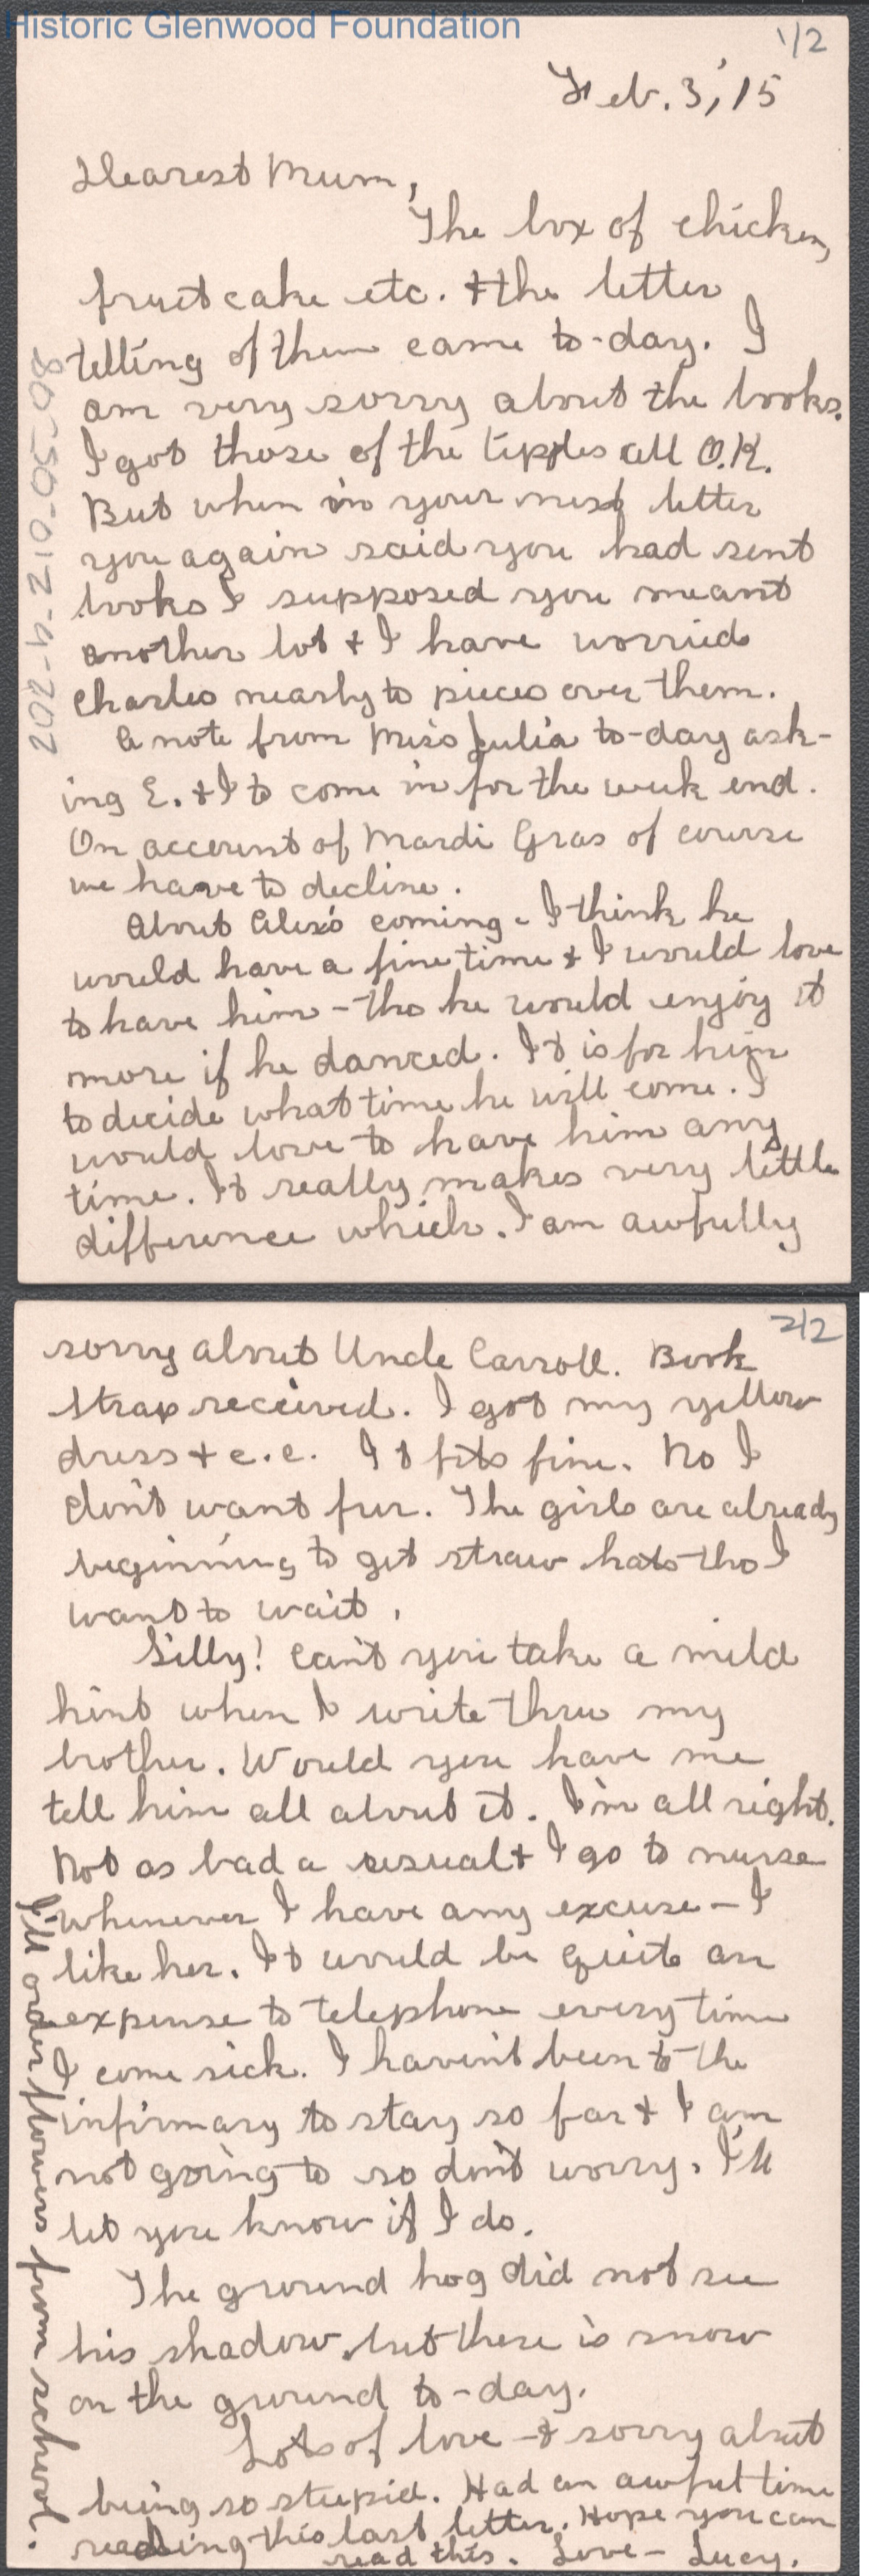 Historic Glenwood Foundation
1/2
Feb. 3, '15
Dearest Mum,
The box of chicken,
fruit cake etc. & the letter
telling of them came to-day. I
am very sorry about the books.
I got those of the tipples all O.K.
But when in your next letter
you again said you had sent
books I supposed you meant
another lot & I have worried
Charles nearly to pieces over them.
A note from Miss Julia to-day ask-
ing E. & I to come in for the week end.
On account of Mardi Gras of course
we have to decline.
About Alex's coming - I think he
would have a fine time & I would love
to have him - tho he would enjoy it
more if he danced. It is for him
to decide what time he will come. I
would love to have him any
time. It really makes very little
difference which. I am awfully
202-h-210-05-08
2/2
sorry about Uncle Carroll. Book
strap received. I got my yellow
dress & c.c. It fits fine. No I
don't want fur. The girls are already
beginning to get straw hats tho I
want to wait.
Silly! Can't you take a mild
hint when I write thru my
brother. Would you have me
tell him all about it. I'm all right.
Not as bad a usual & I go to nurse
whenever I have any excuse - I
like her. It would be quite an
expense to telephone every time
I come sick. I haven't been to the
infirmary to stay so far & I am
not going to so don't worry. I'll
let you know if I do.
The ground hog did not see
his shadow, but there is snow
on the ground to-day.
Lots of love - & sorry about
being so stupid. Had an awful time
reading this last letter. Hope you can
read this. Love - Lucy.
I'll order flowers from school.